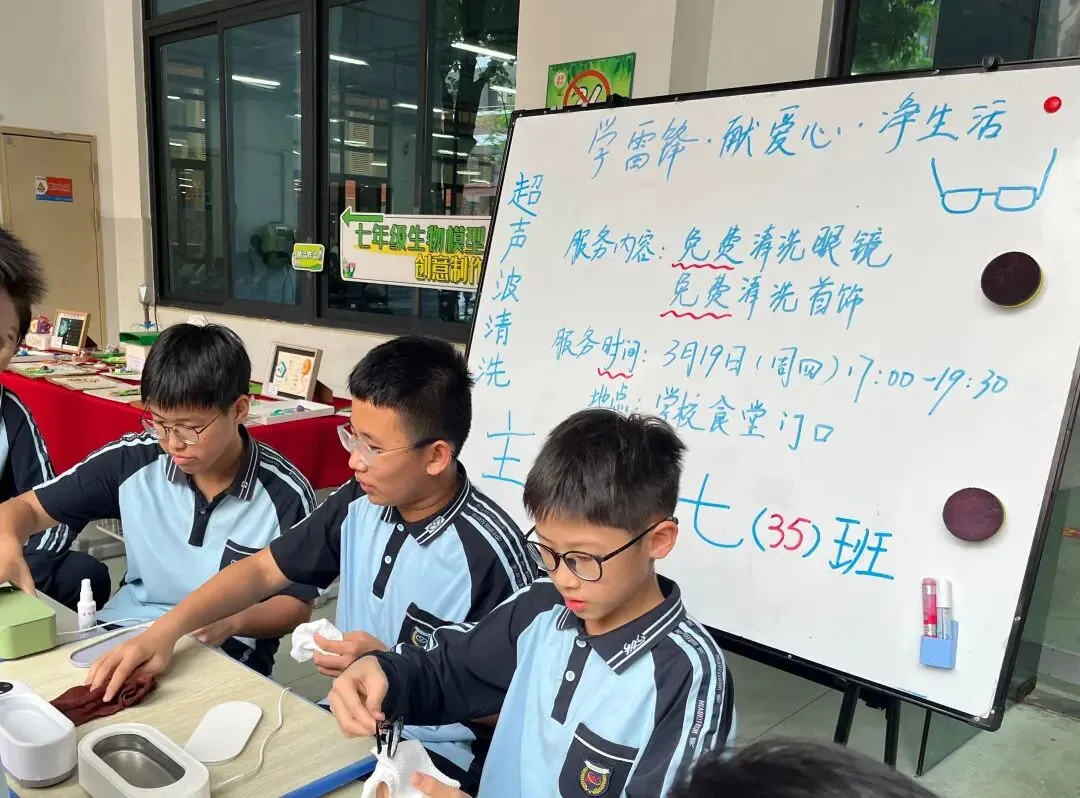 学雷锋·献爱心·净生活
超声波清洗
主
服务内容：免费清洗眼镜
免费清洗首饰
服务时间：3月19日（周四）17:00-19:30
地点：学校食堂门口
七（35）班
七年级生物模型
创意制作